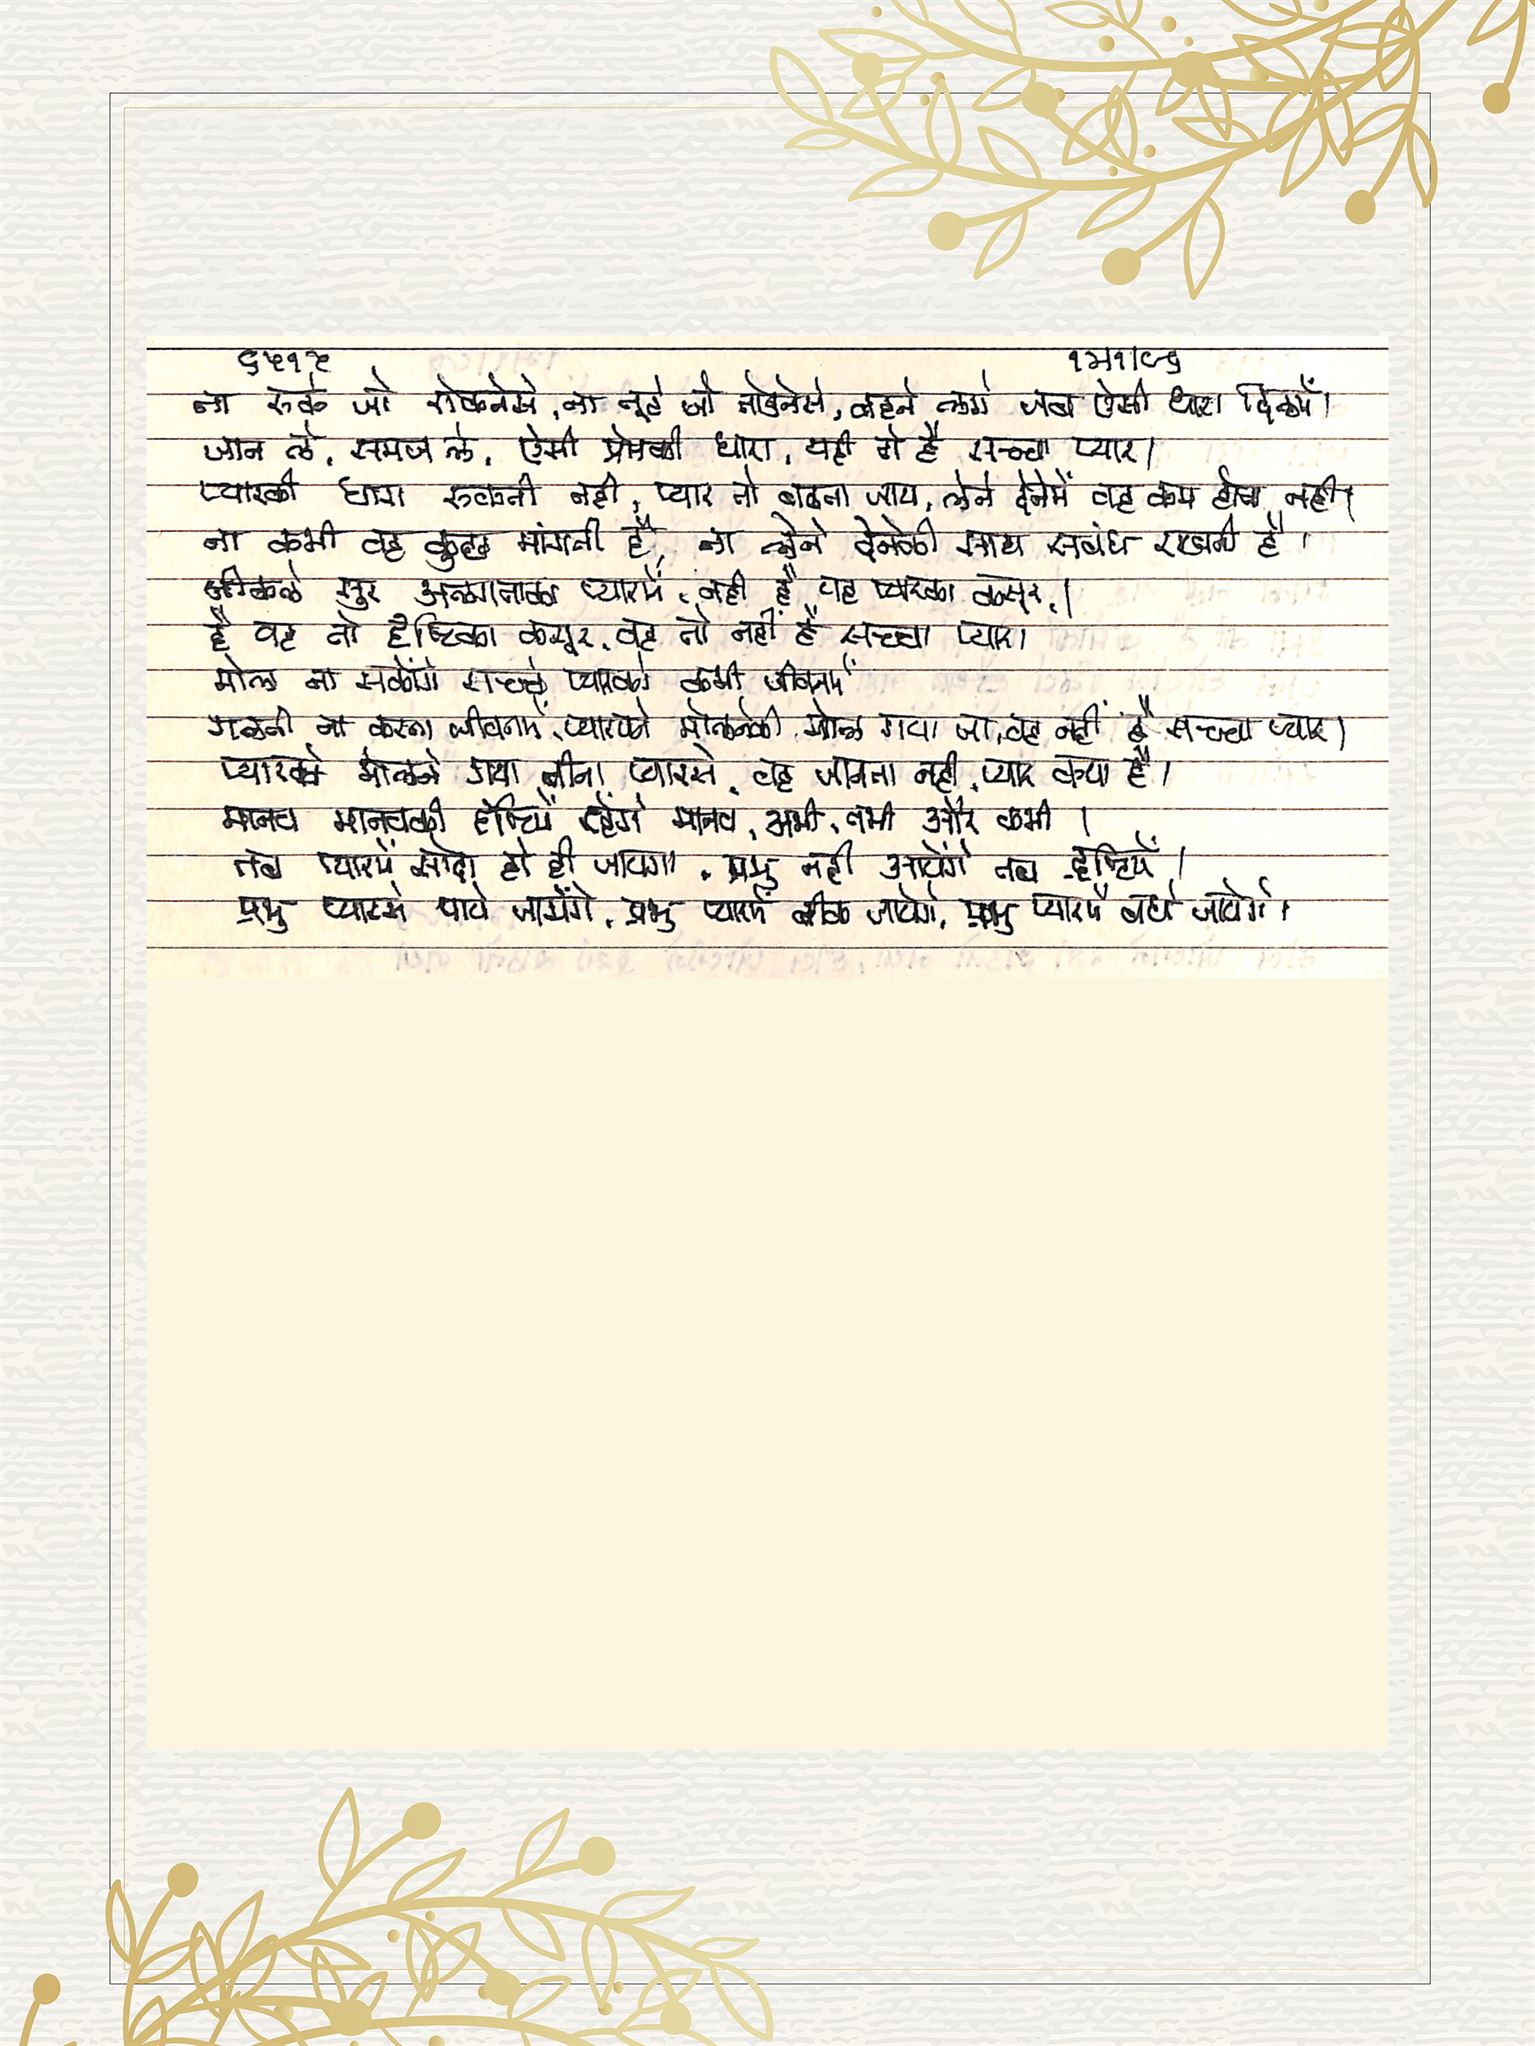 ६५१५ १३।१।८७
ना रुके जो रोकनेसे, ना तूटे जो तोडनेसे, बहने लगे जब ऐसी धारा दिलमें।
जान ले, समज ले, ऐसी प्रेमकी धारा, यही तो है सच्चा प्यार।
प्यारकी धारा रुकती नही, प्यार तो बढता जाय, लेने देनेमें वह कम होता नही।
ना कभी वह कुछ मांगती है, ना लेने देनेकी साथ सबंध रखती है।
नीकले सुर अलगताका प्यारमें, नही है यह प्यारका कसूर।
है वह तो द्रष्टिका कसूर, वह तो नहीं है सच्चा प्यार।
मोल ना सकोंगे सच्चे प्यारको कभी जीवनमें
गलती ना करना जीवनमें, प्यारको मोलनेकी, मोल गया जो, वह नहीं है सच्चा प्यार।
प्यारको मोलने गया बीना प्यारसे, वह जानता नही, प्यार क्या है।
मानव मानवकी द्रष्टिमें रहेंगे मानव, अभी, तभी और कभी।
तब प्यारमें सोदा हो ही जायगा, प्रभु नही आयेंगे तब द्रष्टिमें।
प्रभु प्यारसे पाये जायेंगे, प्रभु प्यारमें बीक जायेगे, प्रभु प्यारमें बंधे जायेगे।